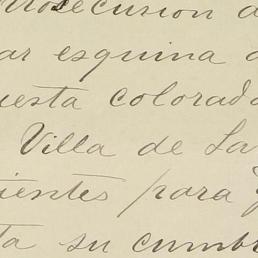 secucion
ar esquina
uesta colorada
Villa de La
ientes para
ta su cumbr